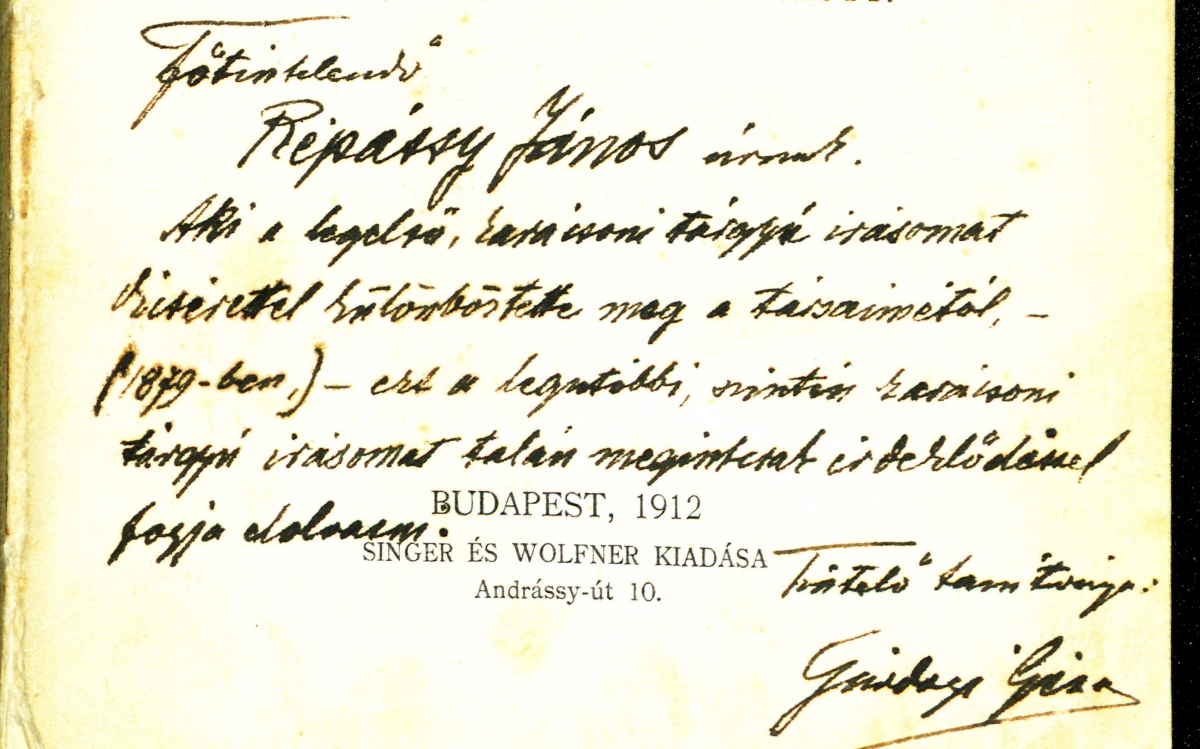 Főtisztelendő
Répássy János úrnak.
Aki a legelső, karácsoni tárgyú irásomat
dicsérettel különböztette meg a társaimétól, –
(1879-ben,) – ezt a legutóbbi, szintén karácsoni
tárgyú irásomat talán megintcsak érdeklődéssel
fogja elolvasni.
BUDAPEST, 1912
SINGER ÉS WOLFNER KIADÁSA
Andrássy-út 10.
Tisztelő tanítványa:
Gárdonyi Géza